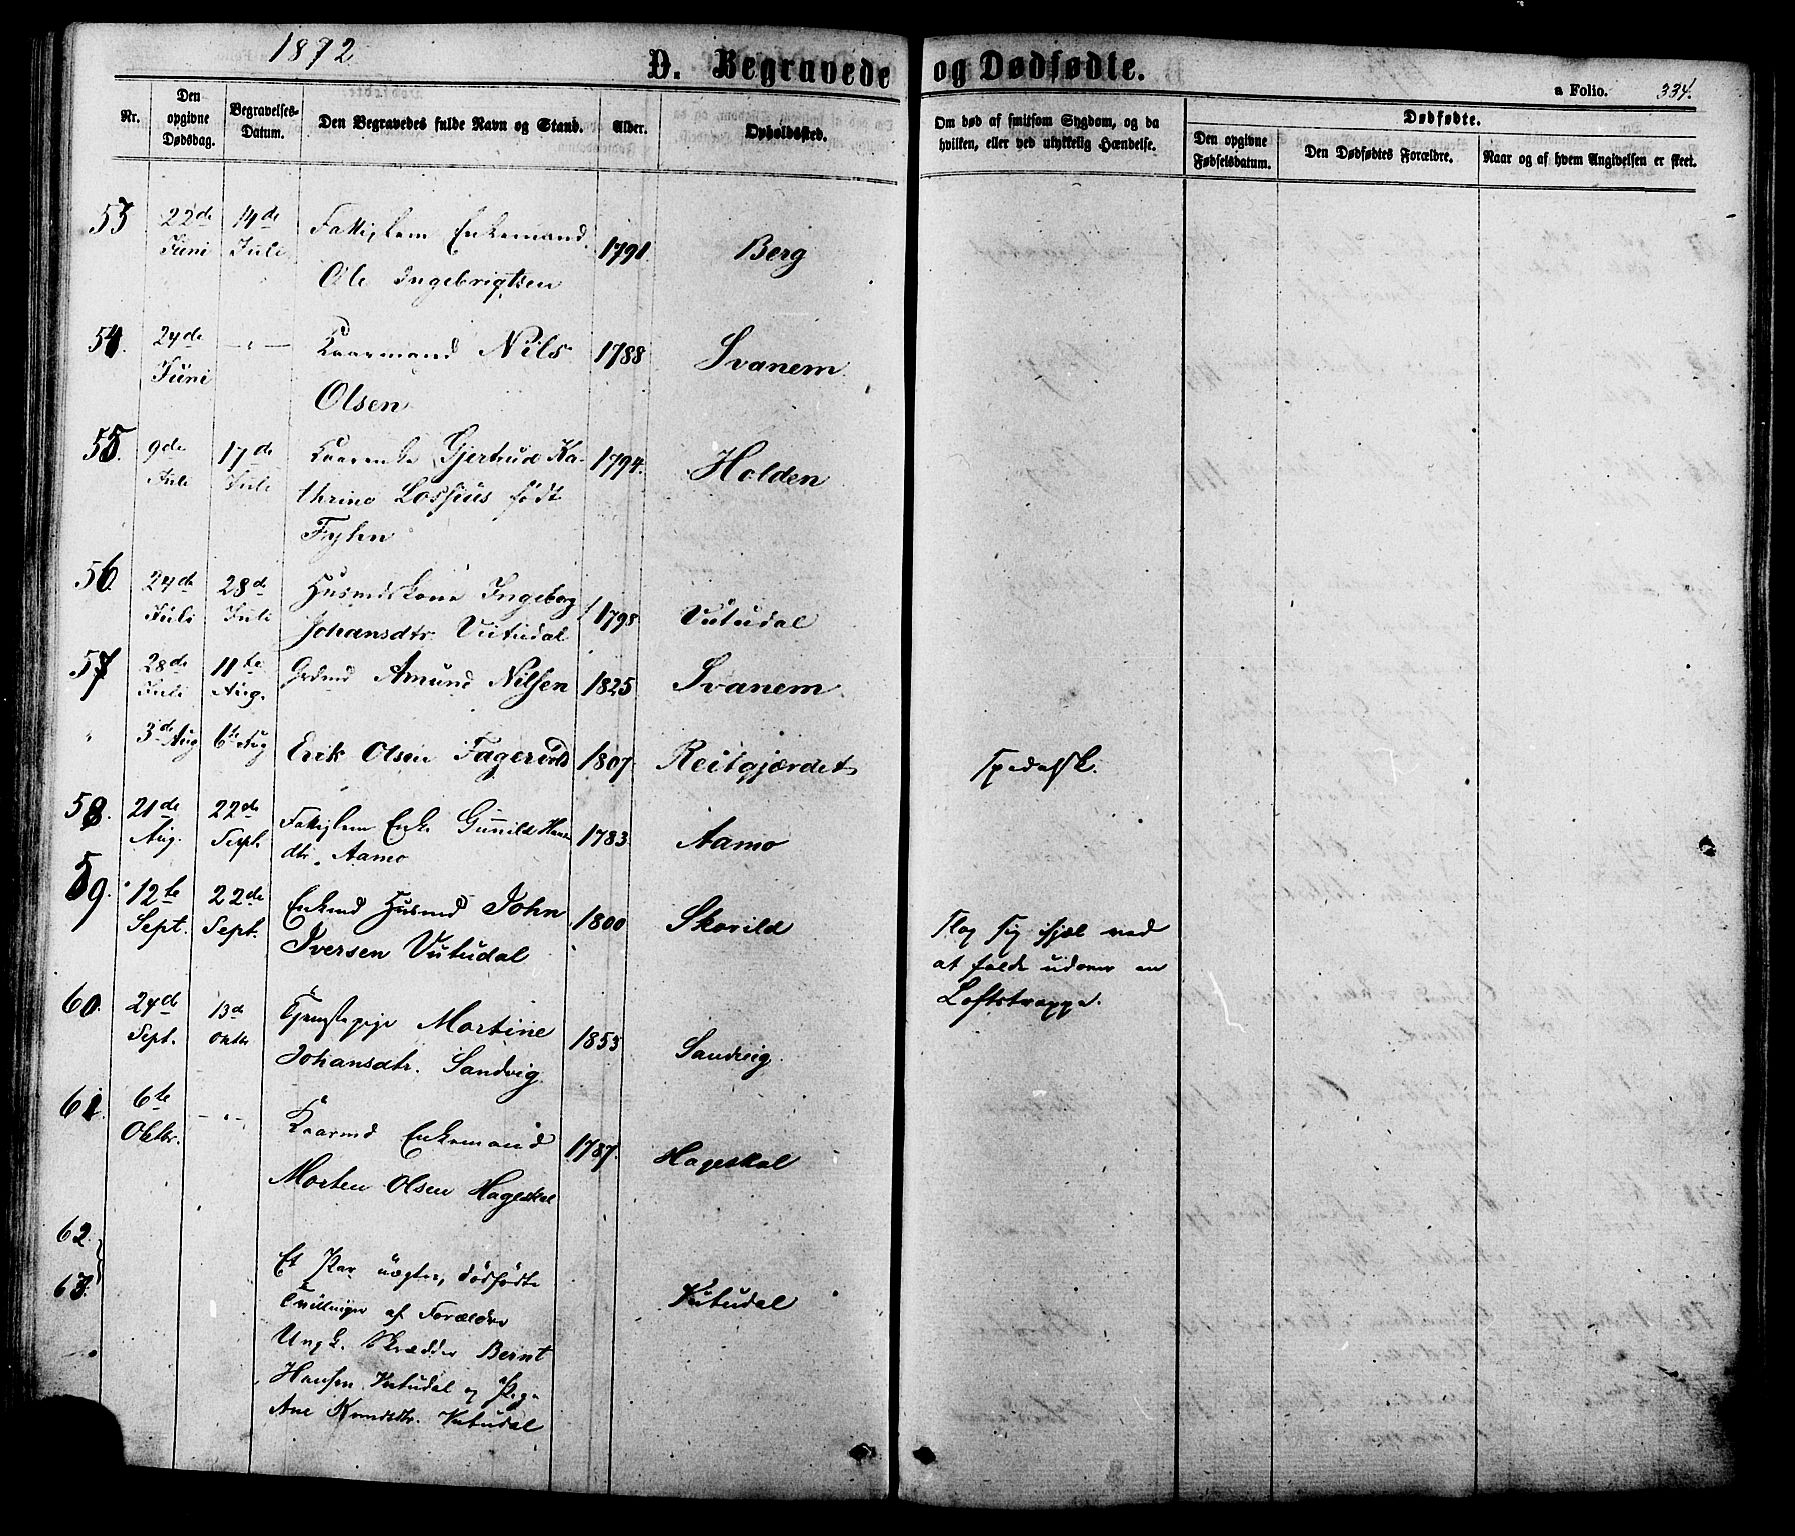 1872
D. Begravede og Dødfødte.
a Folio. 334.
Nr.
Den opgivne Dødsdag.
Begravelses-Datum.
Den Begravedes fulde Navn og Stand.
Alder.
Opholdssted.
Om død af smitsom Sygdom, og da hvilken, eller ved ulykkelig Hændelse.
Dødfødte.
Den opgivne Fødselsdatum.
Den Dødfødtes Forældre.
Naar og af hvem Angivelsen er skeet.
53 22de Juni 14de Juli Fattiglem Enkemand 1791 Berg
Ole Ingebrigtsen
54. 24de Juni -"- Kaarmand Nils 1788 Svanem
Olsen
55. 9de Juli 17de Juli Kaarenke Gjertrud Ka- 1794. Holden
thrine Lossius født
Fyhn
56. 24de Juli 28de Juli Husmdskone Ingeborg 1798 Vutudal
Johansdtr. Vutudal
57 28de Juli 11te Aug. Grdmd Amund Nilsen 1825 Svanem
" 3de Aug 6te Aug Erik Olsen Fagervold 1807 Reitgjærdet Spedalsk.
58. 21de Aug. 22de Sept. Fattiglem Enke Gunild Hans 1783 Aamo
dtr. Aamo
59. 12te Sept. 22de Sept. Enkemd Husmd John 1800 Skovild Slog sig ihjæl ved
Iversen Vutudal at falde udover en
Loftstrappe.
60. 24de Sept. 13de Oktbr Tjenestepige Martine 1853 Sandvig
Johansdtr. Sandvig
61. 6te Oktbr. -"- Kaarmd Enkemand 1787. Hageskal
Morten Olsen Hageskal
62.
63. Et Par uægte, dødfødte Vutudal
Tvillinger af Forældre
Ungk. Skrædder Bernt
Hansen Vutudal og Pige
Ane Knudsdtr. Vutudal